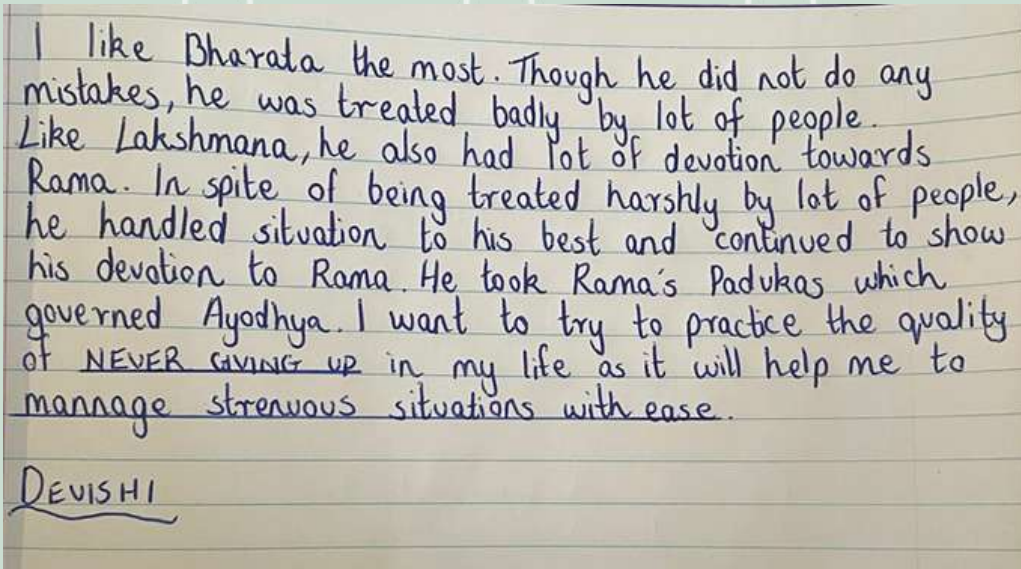 I like Bharata the most. Though he did not do any
mistakes, he was treated badly by lot of people.
Like Lakshmana, he also had lot of devotion towards
Rama. In spite of being treated harshly by lot of people,
he handled situation to his best and continued to show
his devotion to Rama. He took Rama's Padukas which
governed Ayodhya. I want to try to practice the quality
of NEVER GIVING UP in my life as it will help me to
mannage strenuous situations with ease.
DEVISHI